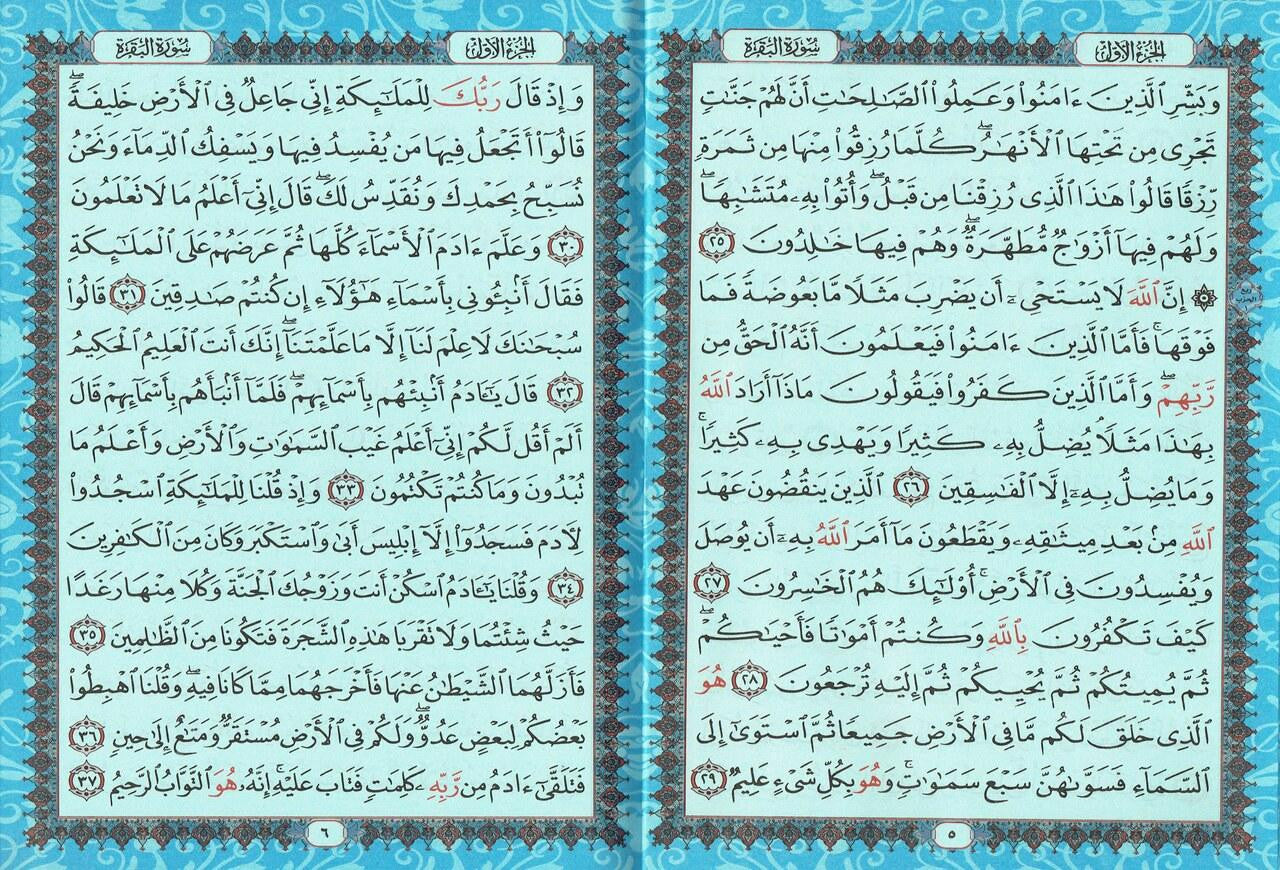 الجزء الأول
سورة البقرة
وَبَشِّرِ ٱلَّذِينَ ءَامَنُوا۟ وَعَمِلُوا۟ ٱلصَّـٰلِحَـٰتِ أَنَّ لَهُمْ جَنَّـٰتٍ
تَجْرِى مِن تَحْتِهَا ٱلْأَنْهَـٰرُ ۖ كُلَّمَا رُزِقُوا۟ مِنْهَا مِن ثَمَرَةٍ
رِّزْقًا قَالُوا۟ هَـٰذَا ٱلَّذِى رُزِقْنَا مِن قَبْلُ ۖ وَأُتُوا۟ بِهِۦ مُتَشَـٰبِهًا ۖ
وَلَهُمْ فِيهَآ أَزْوَٰجٌ مُّطَهَّرَةٌ ۖ وَهُمْ فِيهَا خَـٰلِدُونَ ٢٥
۞ إِنَّ ٱللَّهَ لَا يَسْتَحْىِۦٓ أَن يَضْرِبَ مَثَلًا مَّا بَعُوضَةً فَمَا
فَوْقَهَا ۚ فَأَمَّا ٱلَّذِينَ ءَامَنُوا۟ فَيَعْلَمُونَ أَنَّهُ ٱلْحَقُّ مِن
رَّبِّهِمْ ۖ وَأَمَّا ٱلَّذِينَ كَفَرُوا۟ فَيَقُولُونَ مَاذَآ أَرَادَ ٱللَّهُ
بِهَـٰذَا مَثَلًا ۘ يُضِلُّ بِهِۦ كَثِيرًا وَيَهْدِى بِهِۦ كَثِيرًا ۚ
وَمَا يُضِلُّ بِهِۦٓ إِلَّا ٱلْفَـٰسِقِينَ ٢٦ ٱلَّذِينَ يَنقُضُونَ عَهْدَ
ٱللَّهِ مِنۢ بَعْدِ مِيثَـٰقِهِۦ وَيَقْطَعُونَ مَآ أَمَرَ ٱللَّهُ بِهِۦٓ أَن يُوصَلَ
وَيُفْسِدُونَ فِى ٱلْأَرْضِ ۚ أُو۟لَـٰٓئِكَ هُمُ ٱلْخَـٰسِرُونَ ٢٧
كَيْفَ تَكْفُرُونَ بِٱللَّهِ وَكُنتُمْ أَمْوَٰتًا فَأَحْيَـٰكُمْ ۖ
ثُمَّ يُمِيتُكُمْ ثُمَّ يُحْيِيكُمْ ثُمَّ إِلَيْهِ تُرْجَعُونَ ٢٨ هُوَ
ٱلَّذِى خَلَقَ لَكُم مَّا فِى ٱلْأَرْضِ جَمِيعًا ثُمَّ ٱسْتَوَىٰٓ إِلَى
ٱلسَّمَآءِ فَسَوَّىٰهُنَّ سَبْعَ سَمَـٰوَٰتٍ ۚ وَهُوَ بِكُلِّ شَىْءٍ عَلِيمٌ ٢٩
٥
الجزء الأول
سورة البقرة
وَإِذْ قَالَ رَبُّكَ لِلْمَلَـٰٓئِكَةِ إِنِّى جَاعِلٌ فِى ٱلْأَرْضِ خَلِيفَةً ۖ
قَالُوٓا۟ أَتَجْعَلُ فِيهَا مَن يُفْسِدُ فِيهَا وَيَسْفِكُ ٱلدِّمَآءَ وَنَحْنُ
نُسَبِّحُ بِحَمْدِكَ وَنُقَدِّسُ لَكَ ۖ قَالَ إِنِّىٓ أَعْلَمُ مَا لَا تَعْلَمُونَ
٣٠ وَعَلَّمَ ءَادَمَ ٱلْأَسْمَآءَ كُلَّهَا ثُمَّ عَرَضَهُمْ عَلَى ٱلْمَلَـٰٓئِكَةِ
فَقَالَ أَنۢبِـُٔونِى بِأَسْمَآءِ هَـٰٓؤُلَآءِ إِن كُنتُمْ صَـٰدِقِينَ ٣١ قَالُوا۟
سُبْحَـٰنَكَ لَا عِلْمَ لَنَآ إِلَّا مَا عَلَّمْتَنَآ ۖ إِنَّكَ أَنتَ ٱلْعَلِيمُ ٱلْحَكِيمُ
٣٢ قَالَ يَـٰٓـَٔادَمُ أَنۢبِئْهُم بِأَسْمَآئِهِمْ ۖ فَلَمَّآ أَنۢبَأَهُم بِأَسْمَآئِهِمْ قَالَ
أَلَمْ أَقُل لَّكُمْ إِنِّىٓ أَعْلَمُ غَيْبَ ٱلسَّمَـٰوَٰتِ وَٱلْأَرْضِ وَأَعْلَمُ مَا
تُبْدُونَ وَمَا كُنتُمْ تَكْتُمُونَ ٣٣ وَإِذْ قُلْنَا لِلْمَلَـٰٓئِكَةِ ٱسْجُدُوا۟
لِـَٔادَمَ فَسَجَدُوٓا۟ إِلَّآ إِبْلِيسَ أَبَىٰ وَٱسْتَكْبَرَ وَكَانَ مِنَ ٱلْكَـٰفِرِينَ
٣٤ وَقُلْنَا يَـٰٓـَٔادَمُ ٱسْكُنْ أَنتَ وَزَوْجُكَ ٱلْجَنَّةَ وَكُلَا مِنْهَا رَغَدًا
حَيْثُ شِئْتُمَا وَلَا تَقْرَبَا هَـٰذِهِ ٱلشَّجَرَةَ فَتَكُونَا مِنَ ٱلظَّـٰلِمِينَ ٣٥
فَأَزَلَّهُمَا ٱلشَّيْطَـٰنُ عَنْهَا فَأَخْرَجَهُمَا مِمَّا كَانَا فِيهِ ۖ وَقُلْنَا ٱهْبِطُوا۟
بَعْضُكُمْ لِبَعْضٍ عَدُوٌّ ۖ وَلَكُمْ فِى ٱلْأَرْضِ مُسْتَقَرٌّ وَمَتَـٰعٌ إِلَىٰ حِينٍ ٣٦
فَتَلَقَّىٰٓ ءَادَمُ مِن رَّبِّهِۦ كَلِمَـٰتٍ فَتَابَ عَلَيْهِ ۚ إِنَّهُۥ هُوَ ٱلتَّوَّابُ ٱلرَّحِيمُ ٣٧
٦